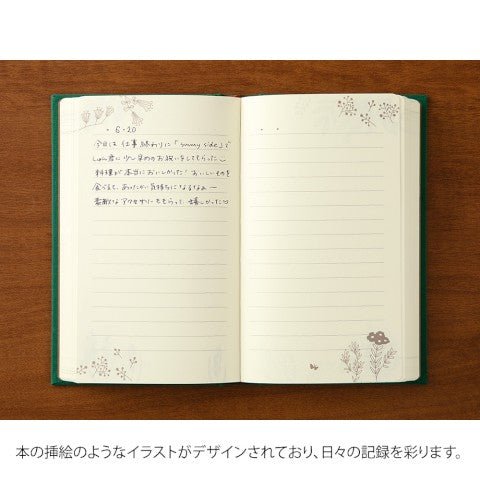 ・ 6・20
今日は 仕事 終わりに「sunny side」で
しゅん君に 少し早めのお祝いをしてもらった
料理が本当においしかった！ おいしいものを
食べると、あったかい気持ちになるなぁー
素敵なアクセサリーももらって 嬉しかった♡
本の挿絵のようなイラストがデザインされており、日々の記録を彩ります。